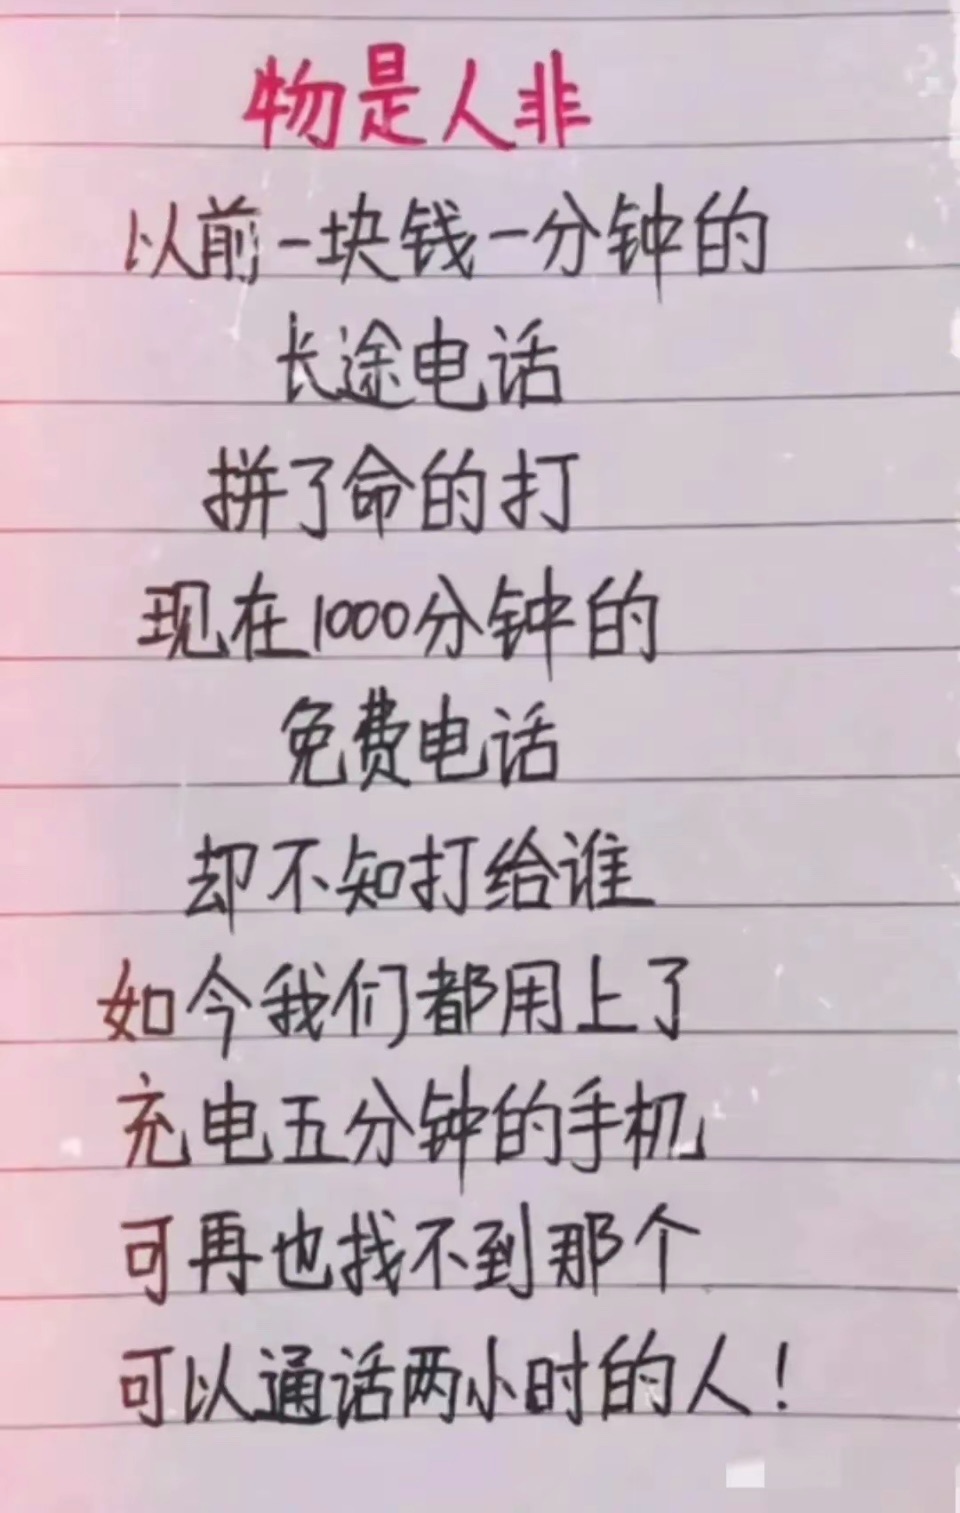 物是人非
以前一块钱一分钟的
长途电话
拼了命的打
现在1000分钟的
免费电话
却不知打给谁
如今我们都用上了
充电五分钟的手机
可再也找不到那个
可以通话两小时的人！